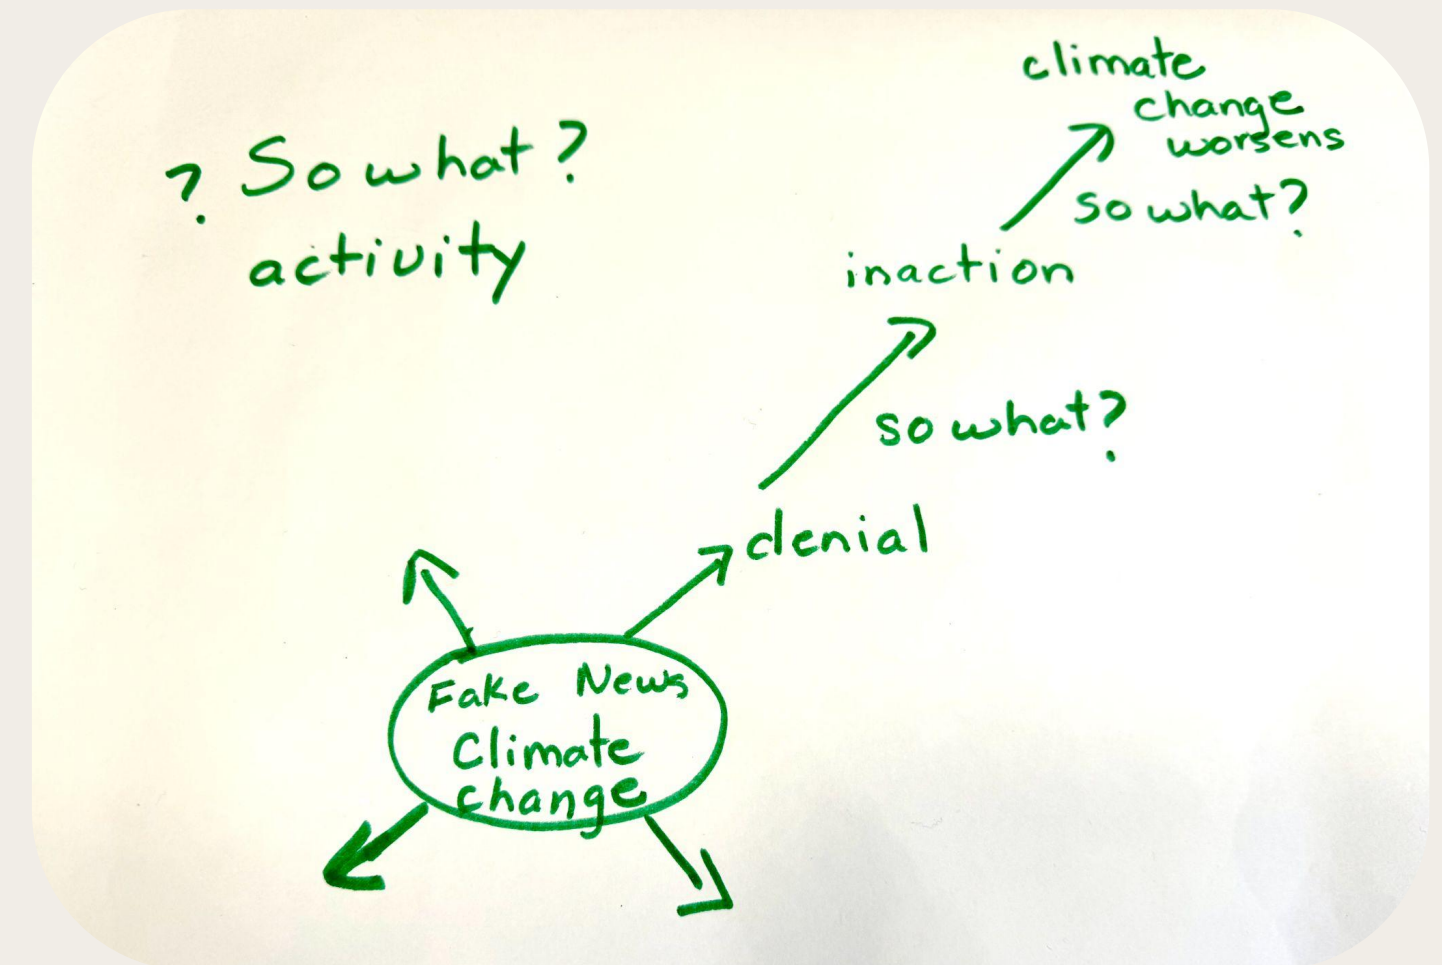 ? So what?
activity
climate
change
worsens
so what?
inaction
so what?
denial
Fake News
Climate
change